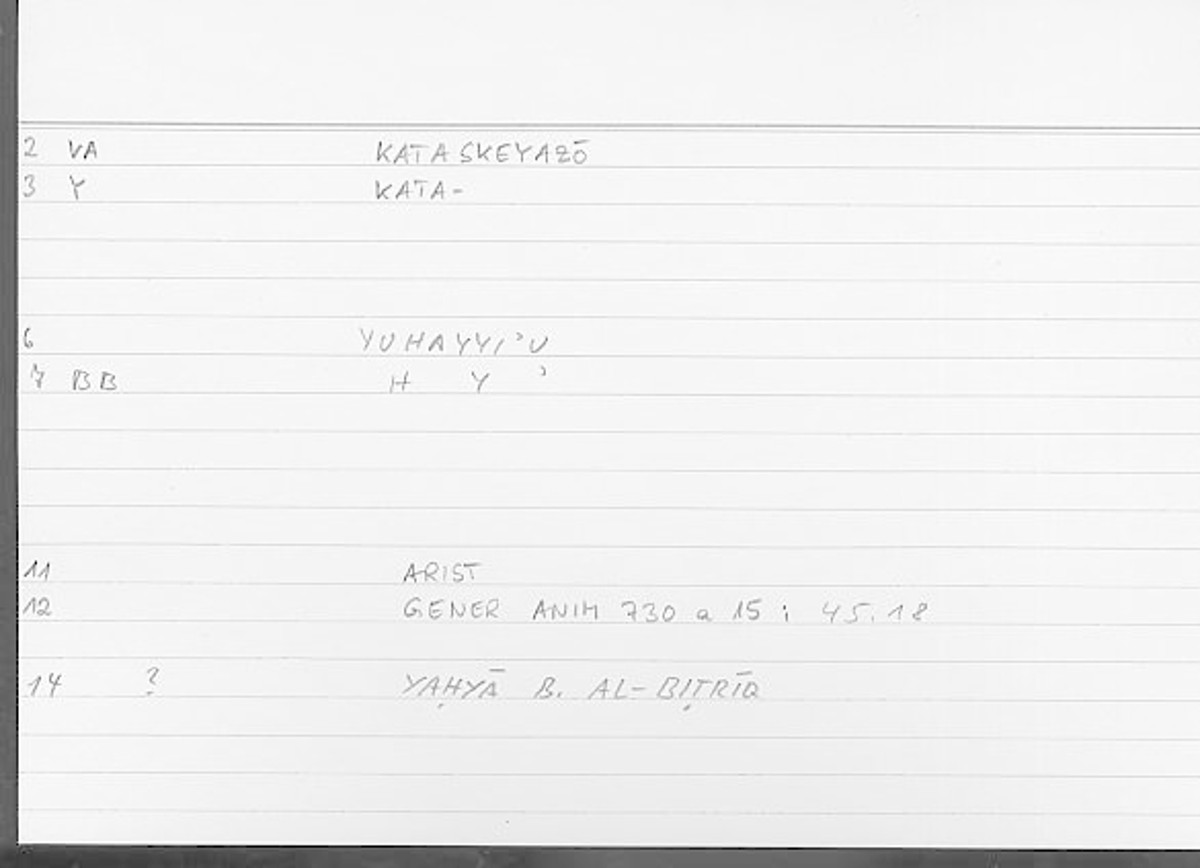 2 VA KATASKEYAZŌ
3 Y KATA-
6 YUHAYYI'U
7 BB H Y '
11 ARIST
12 GENER ANIM 730 a 15 ; 45.18
14 ? YAḤYĀ B. AL-BIṬRĪQ